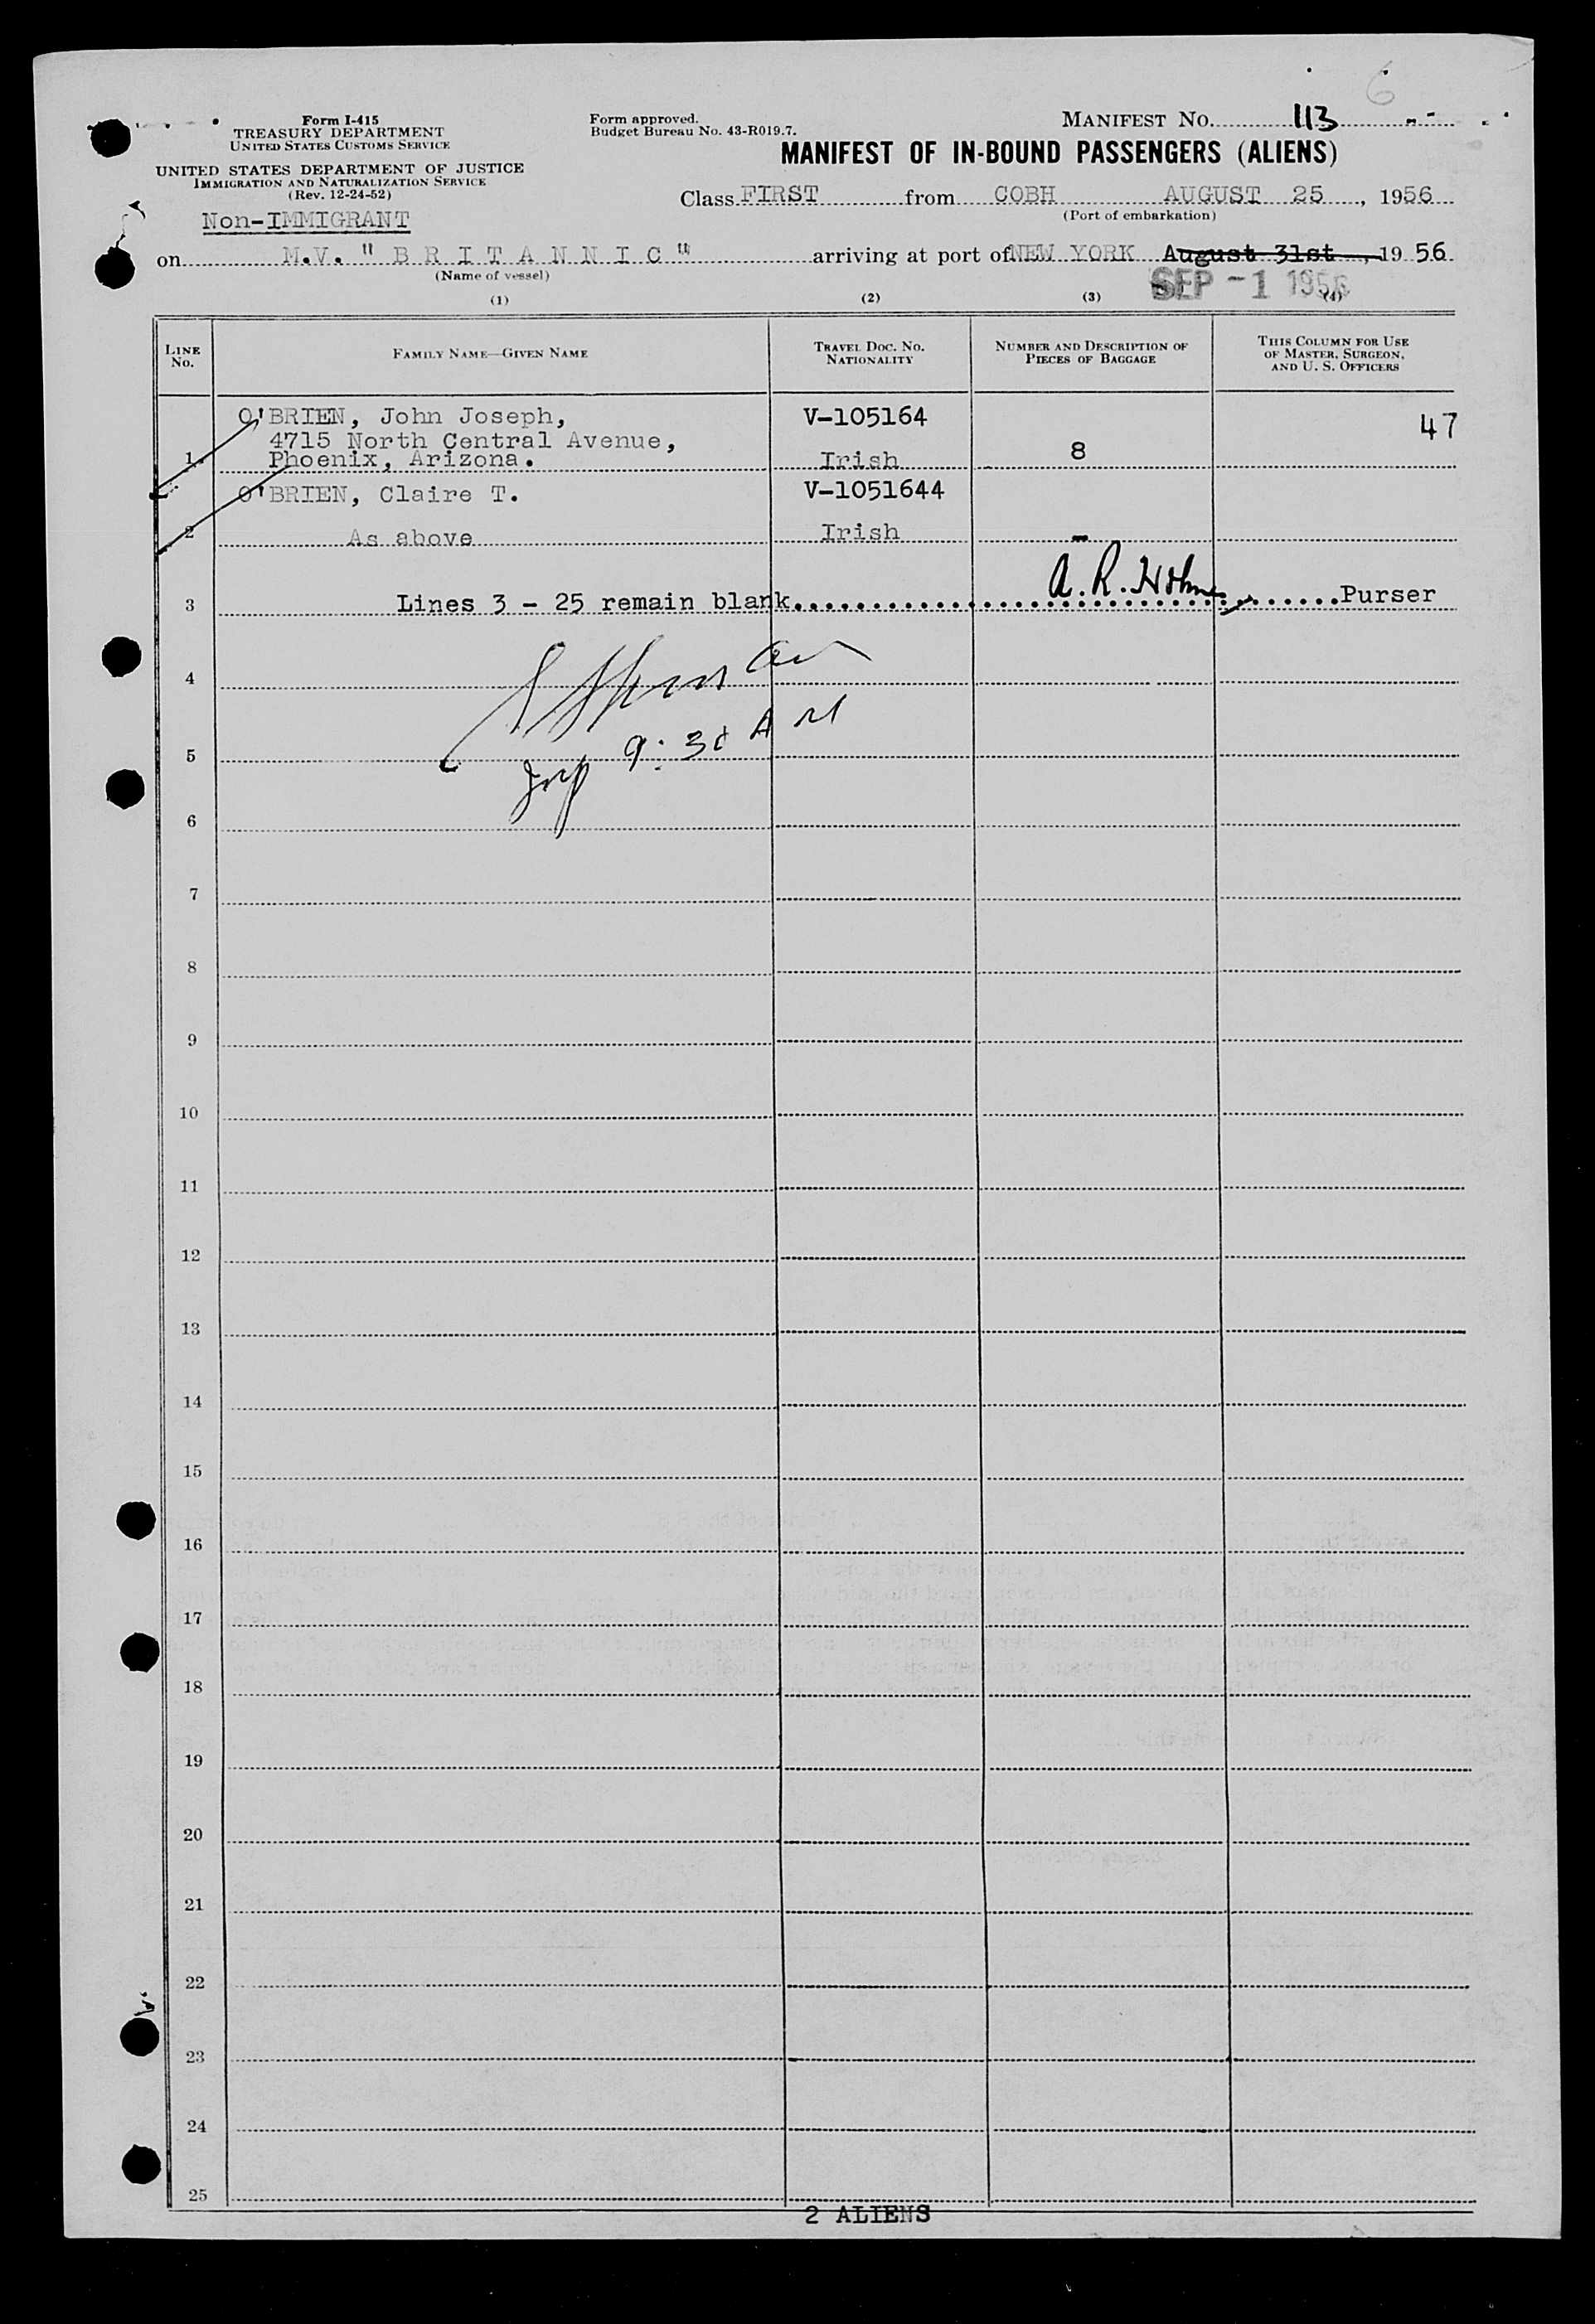 6
Form I-415
TREASURY DEPARTMENT
UNITED STATES CUSTOMS SERVICE
UNITED STATES DEPARTMENT OF JUSTICE
IMMIGRATION AND NATURALIZATION SERVICE
(Rev. 12-24-52)
Non-IMMIGRANT
Form approved.
Budget Bureau No. 43-R019.7.
MANIFEST NO. 113
MANIFEST OF IN-BOUND PASSENGERS (ALIENS)
Class FIRST from COBH AUGUST 25, 1956
(Port of embarkation)
on M.V. "BRITANNIC" arriving at port of NEW YORK August 31st, 1956
(Name of vessel)
SEP -1 1956
(1) (2) (3) (4)
LINE No. FAMILY NAME—GIVEN NAME TRAVEL DOC. NO. NATIONALITY NUMBER AND DESCRIPTION OF PIECES OF BAGGAGE THIS COLUMN FOR USE OF MASTER, SURGEON, AND U. S. OFFICERS
O'BRIEN, John Joseph, V-105164 47
4715 North Central Avenue,
1 Phoenix, Arizona. Irish 8
O'BRIEN, Claire T. V-1051644
2 As above Irish -
3 Lines 3 - 25 remain blank. A. R. Holmes Purser
4
5 9:30 AM
6
7
8
9
10
11
12
13
14
15
16
17
18
19
20
21
22
23
24
25
2 ALIENS